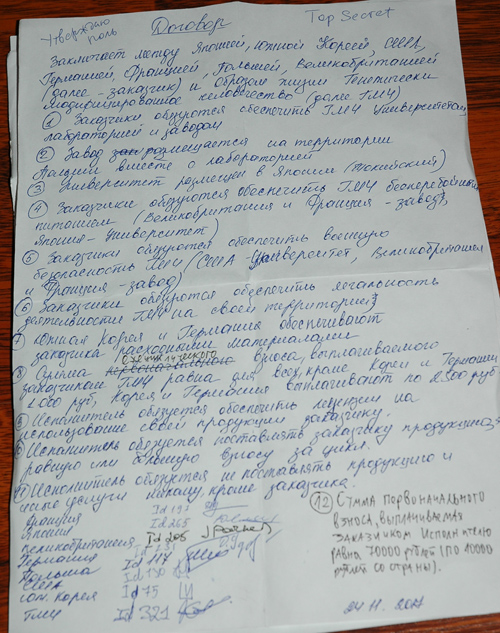 Утверждаю
Договор
Top Secret
Заключается между Японией, Южной Кореей, США,
Германией, Францией, Польшей, Великобританией
(далее - заказчик) и Образом жизни Генетически
Модифицированное человечество (далее ГМЧ)
① Заказчики обязуются обеспечить ГМЧ Университетом,
лабораторией и заводом
② Завод размещается на территории
Польши вместе с лабораторией
③ Университет размещен в Японии (Токийский)
④ Заказчики обязуются обеспечить ГМЧ бесперебойным
питанием (Великобритания и Франция - завод,
Япония - Университет)
⑤ Заказчики обязуются обеспечить военную
безопасность ГМЧ (США - Университет, Великобритания
и Франция - завод)
⑥ Заказчики обязуются обеспечить легальность
деятельности ГМЧ на своей территории
⑦ Южная Корея и Германия обеспечивают
заказчика расходными материалами
⑧ Сумма ежециклического взноса, выплачиваемого
заказчиком ГМЧ равна для всех, кроме Кореи и Германии
1000 руб, Корея и Германия выплачивают по 2500 руб
Исполнитель обязуется обеспечить лицензии на
использование своей продукции заказчику.
Исполнитель обязуется поставлять заказчику продукцию,
равную или большую взносу за цикл.
Исполнитель обязуется не поставлять продукцию и
иные услуги никому, кроме заказчика.
Франция Id 197
Япония Id 265
Великобритания Id 206
Германия
Польша Id 117
США
Юж. Корея Id 75
ГМЧ Id 321
⑫ Сумма первоначального
взноса, выплачиваемая
заказчиком исполнителю
равна 70000 рублей (по 10000
рублей со страны).
24 11. 2017